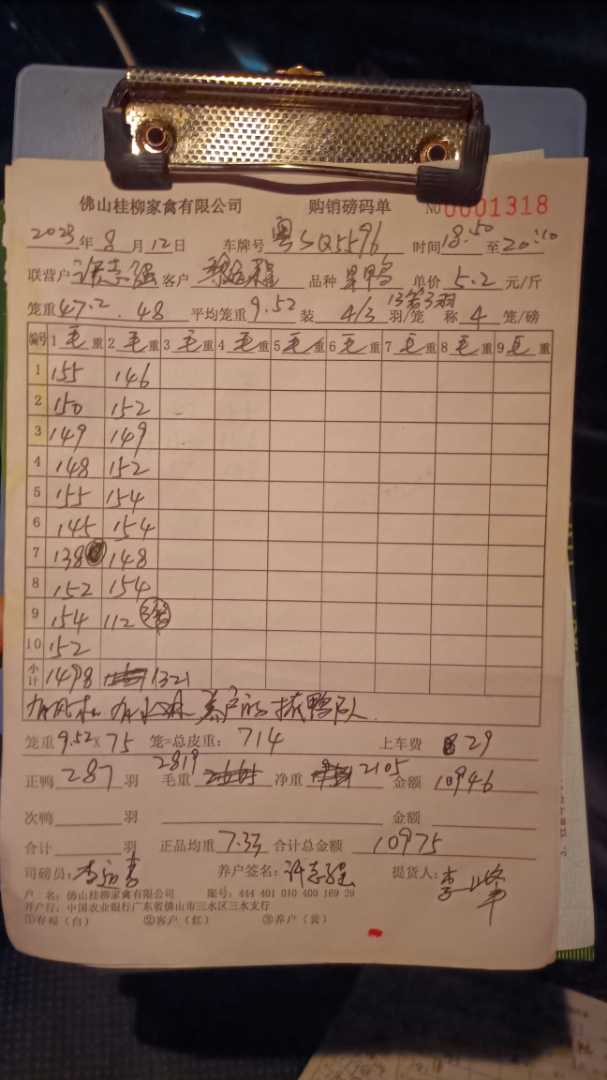 佛山桂柳家禽有限公司 购销磅码单 No 0001318
2023年 8月 12日 车牌号 粤SQ5596 时间 18:50 至 20:10
联营户 客户 品种 单价 5.2 元/斤
笼重 47.2 . 48 平均笼重 9.52 装 4/3 羽/笼 称 4 笼/磅
编号 1 毛重 2 毛重 3 毛重 4 毛重 5 毛重 6 毛重 7 毛重 8 毛重 9 毛重
1 155 146
2 150 152
3 149 149
4 148 152
5 155 154
6 145 154
7 138 148
8 152 154
9 154 112
10 152
小计 1498 1321
笼重 9.52 × 75 笼=总皮重: 714 上车费 29
正鸭 287 羽 毛重 2819 净重 2105 金额 10946
次鸭 羽 金额
合计 羽 正品均重 7.33 合计总金额 10975
司磅员: 养户签名: 提货人:
户 名: 佛山桂柳家禽有限公司 账号: 444 401 010 400 169 29
开户行: 中国农业银行广东省佛山市三水区三水支行
①存根 (白) ②客户 (红) ③养户 (黄)